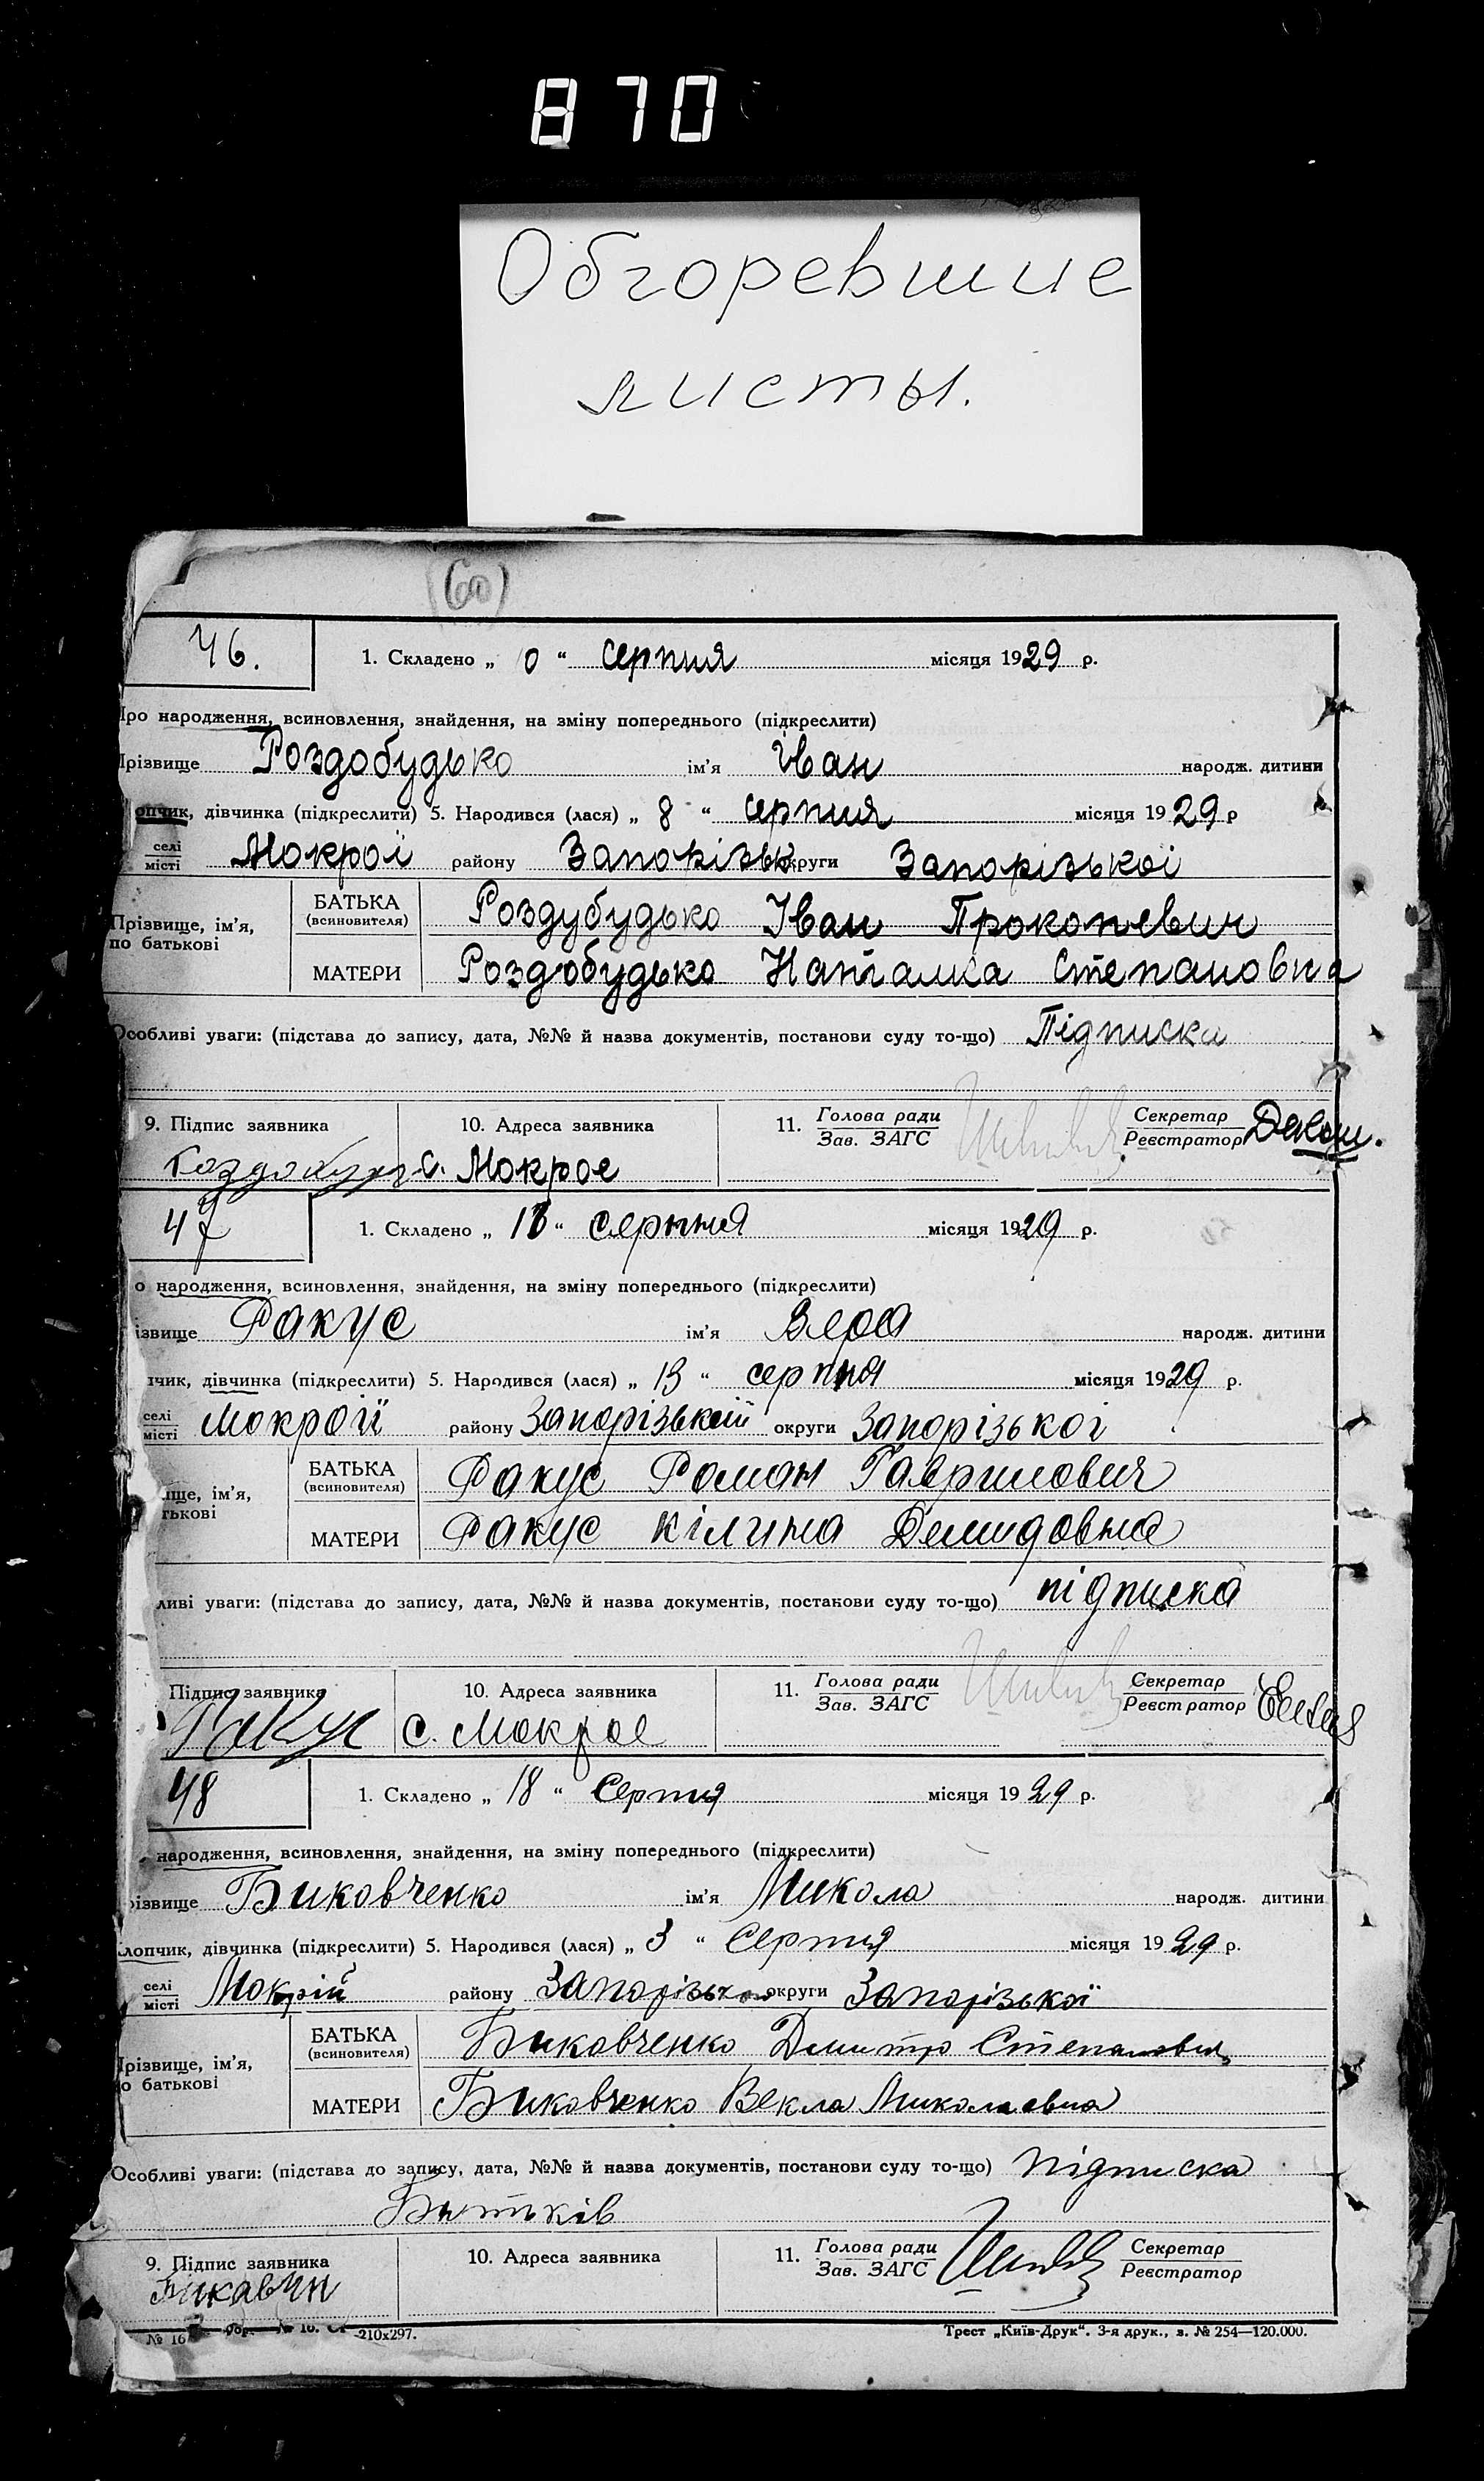 870
Обгоревшие
листы.
(60)
46. 1. Складено „ 10 “ серпня місяця 1929 р.
Про народження, всиновлення, знайдення, на зміну попереднього (підкреслити)
Прізвище Роздобудько ім'я Іван народж. дитини
опчик, дівчинка (підкреслити) 5. Народився (лася) „ 8 “ серпня місяця 1929 р
селі
місті Мокрої району Запорізьк округи Запорізької
Прізвище, ім'я, по батькові БАТЬКА (всиновителя) Роздубудько Іван Прокопевич
МАТЕРИ Роздобудько Наталка Степановна
Особливі уваги: (підстава до запису, дата, №№ й назва документів, постанови суду то-що) Підписка
9. Підпис заявника 10. Адреса заявника 11. Голова ради Секретар
Зав. ЗАГС Реєстратор
с. Мокрое
47 1. Складено „ 13 “ серпня місяця 1929 р.
о народження, всиновлення, знайдення, на зміну попереднього (підкреслити)
ізвище Ракус ім'я Вера народж. дитини
пчик, дівчинка (підкреслити) 5. Народився (лася) „ 13 “ серпня місяця 1929 р.
селі
місті Мокрої району Запорізький округи Запорізької
ище, ім'я, тькові БАТЬКА (всиновителя) Ракус Роман Гаврилович
МАТЕРИ Ракус Кілина Демидовна
ливі уваги: (підстава до запису, дата, №№ й назва документів, постанови суду то-що) підписка
Підпис заявника 10. Адреса заявника 11. Голова ради Секретар
Зав. ЗАГС Реєстратор
Ракус с. Мокрое
48 1. Складено „ 18 “ Серпня місяця 1929 р.
народження, всиновлення, знайдення, на зміну попереднього (підкреслити)
різвище Биковченко ім'я Микола народж. дитини
лопчик, дівчинка (підкреслити) 5. Народився (лася) „ 3 “ Серпня місяця 1929 р.
селі
місті Мокрій району Запорізького округи Запорізької
Прізвище, ім'я, по батькові БАТЬКА (всиновителя) Биковченко Дмитро Степанович
МАТЕРИ Биковченко Векла Миколаевна
Особливі уваги: (підстава до запису, дата, №№ й назва документів, постанови суду то-що) підписка
Батьків
9. Підпис заявника 10. Адреса заявника 11. Голова ради Секретар
Зав. ЗАГС Реєстратор
№ 16 210х297. Трест „Київ-Друк“. 3-я друк., з. № 254—120.000.